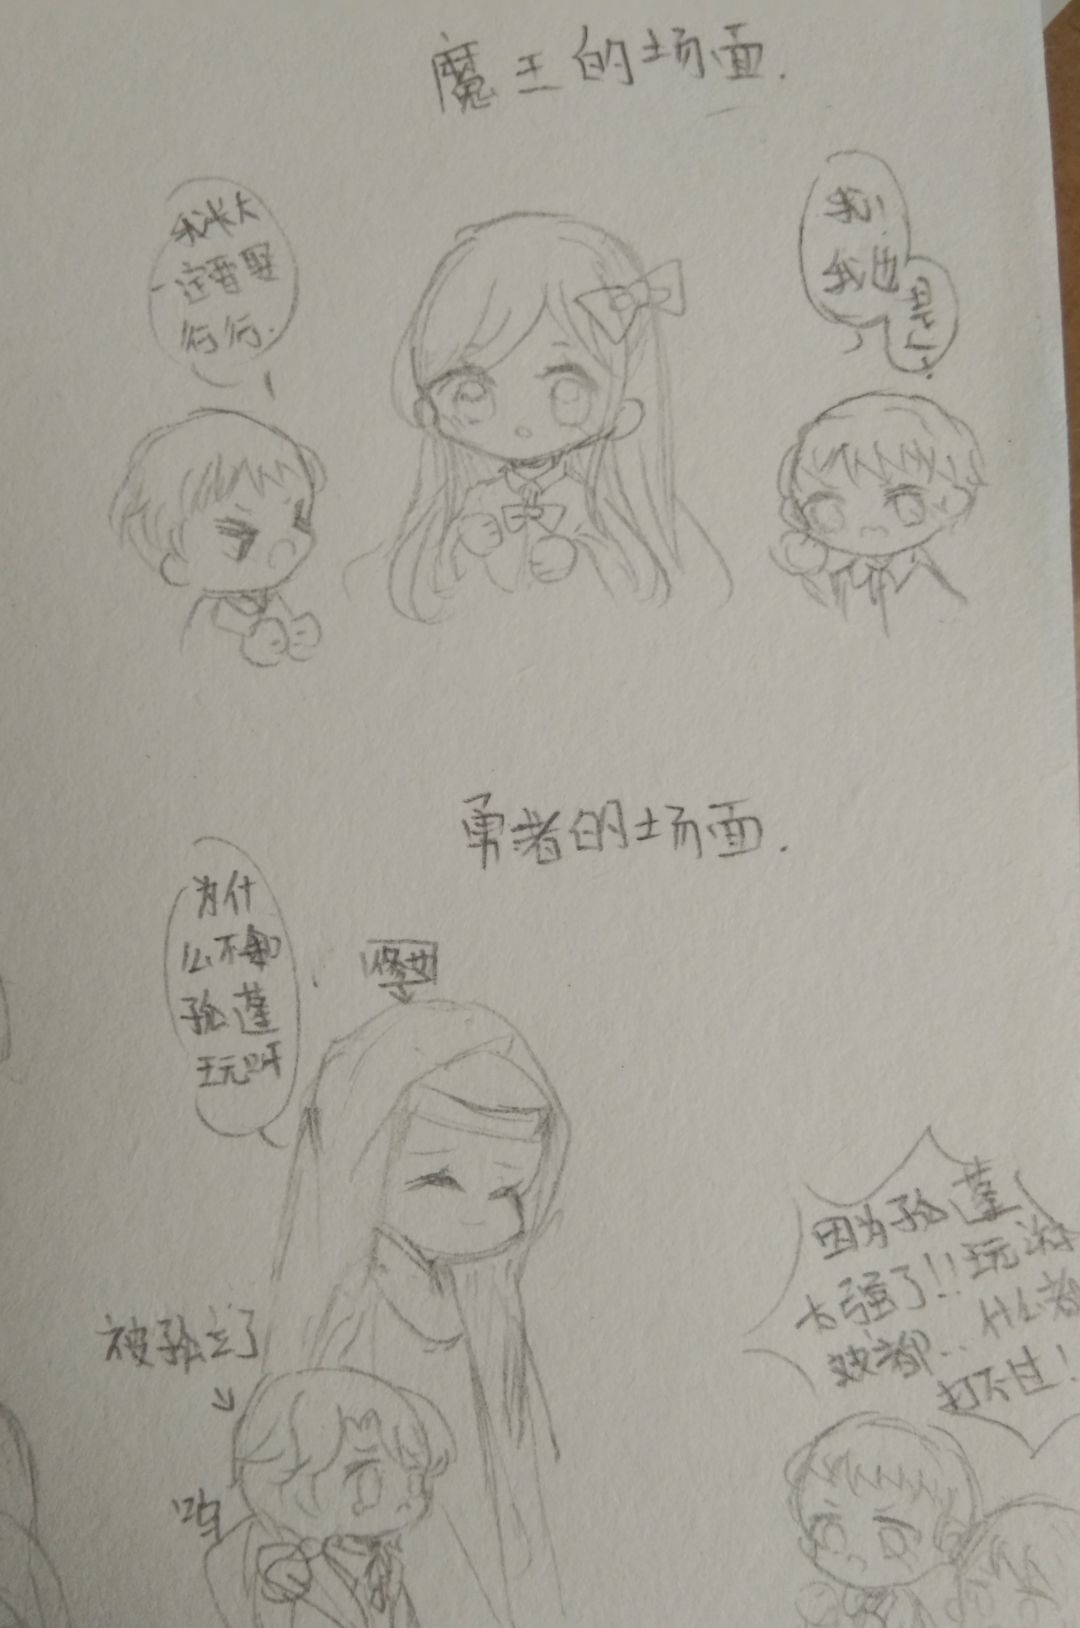 魔王的场面.
我长大
一定要娶
行行.
我!
我也
是!
勇者的场面.
为什
么不和
孙蓬
玩呀
修女
因为孙蓬
太强了!!玩游
戏都…什么都
打不过!
被孤立了